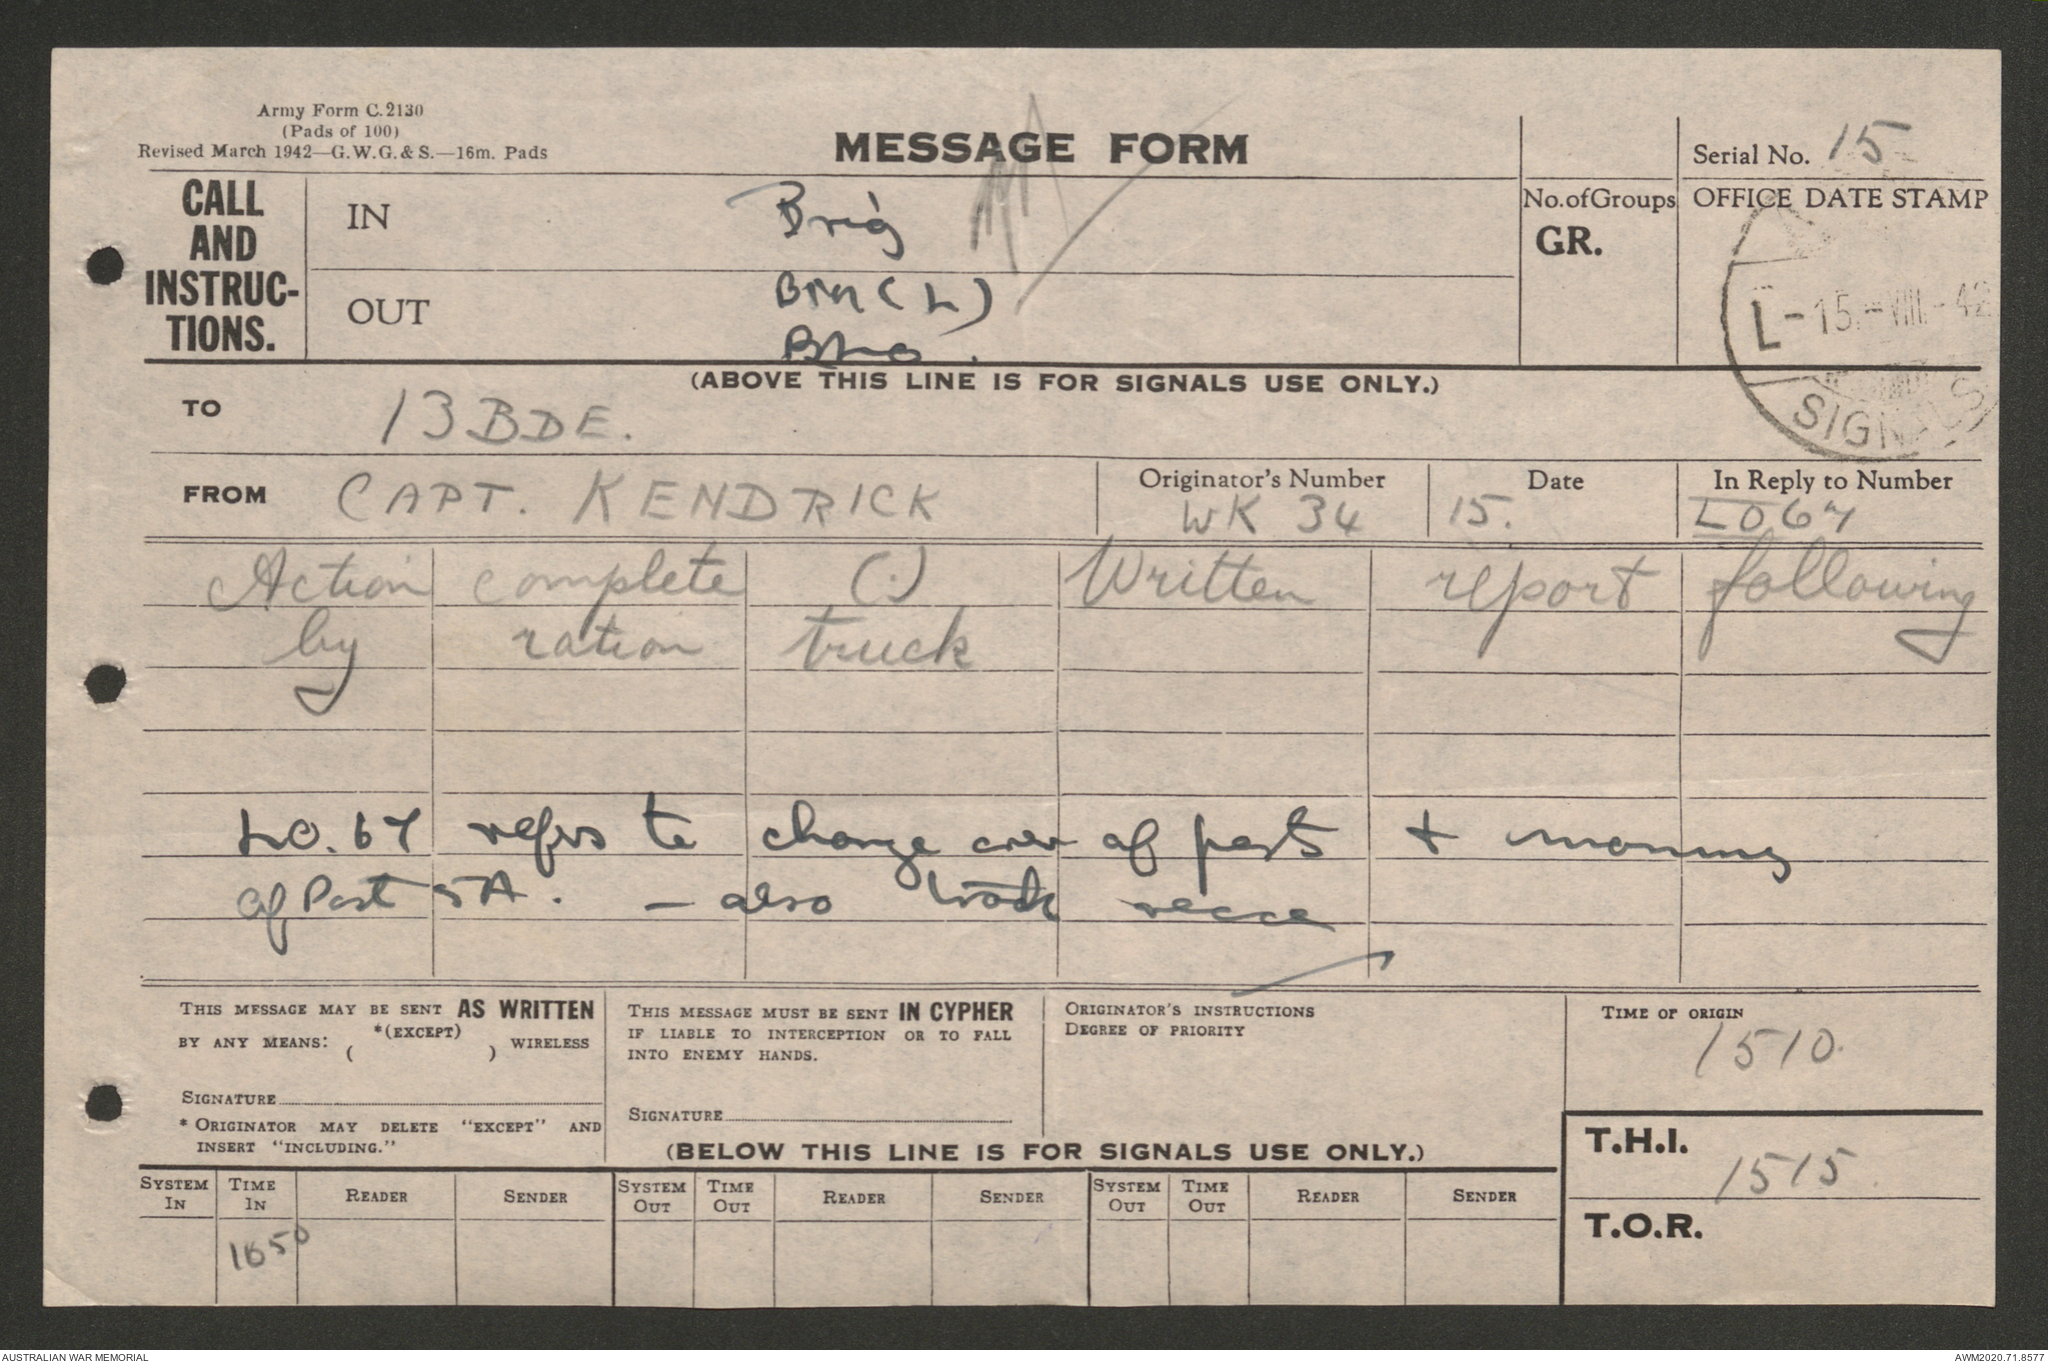 Army Form C.2130
(Pads of 100)
Revised March 1942—G.W.G.& S.—16m. Pads
MESSAGE FORM
Serial No. 15
CALL AND INSTRUC-TIONS.
IN
Brig
OUT
BM (L)
No.ofGroups
GR.
OFFICE DATE STAMP
L - 15.-VIII.-42
SIGNALS
(ABOVE THIS LINE IS FOR SIGNALS USE ONLY.)
TO 13 BDE.
FROM CAPT. KENDRICK
Originator's Number
WK 34
Date
15.
In Reply to Number
LO 67
Action complete (.) Written report following
by ration truck
LO. 67 refers to change over of posts + manning
of Post 5A. - also track recce
THIS MESSAGE MAY BE SENT AS WRITTEN
BY ANY MEANS: *(EXCEPT) ( ) WIRELESS
SIGNATURE
* ORIGINATOR MAY DELETE "EXCEPT" AND
INSERT "INCLUDING."
THIS MESSAGE MUST BE SENT IN CYPHER
IF LIABLE TO INTERCEPTION OR TO FALL
INTO ENEMY HANDS.
SIGNATURE
ORIGINATOR'S INSTRUCTIONS
DEGREE OF PRIORITY
TIME OF ORIGIN
1510.
(BELOW THIS LINE IS FOR SIGNALS USE ONLY.)
T.H.I.
1515.
T.O.R.
SYSTEM IN TIME IN READER SENDER SYSTEM OUT TIME OUT READER SENDER SYSTEM OUT TIME OUT READER SENDER
1650
AUSTRALIAN WAR MEMORIAL
AWM2020.71.8577